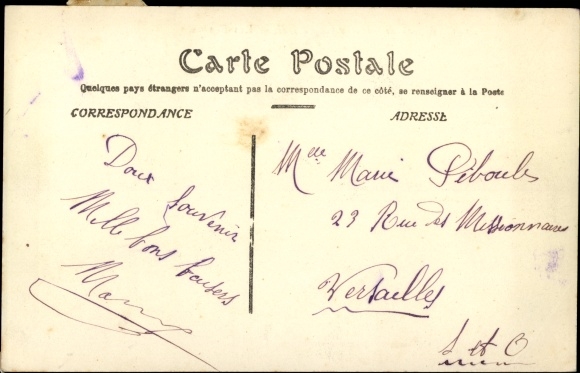 Carte Postale
Quelques pays étrangers n'acceptant pas la correspondance de ce côté, se renseigner à la Poste
CORRESPONDANCE
ADRESSE
Doux Souvenir
Mille bons baisers
Melle Marie Péboules
23 Rue des Missionnaires
Versailles
S et O